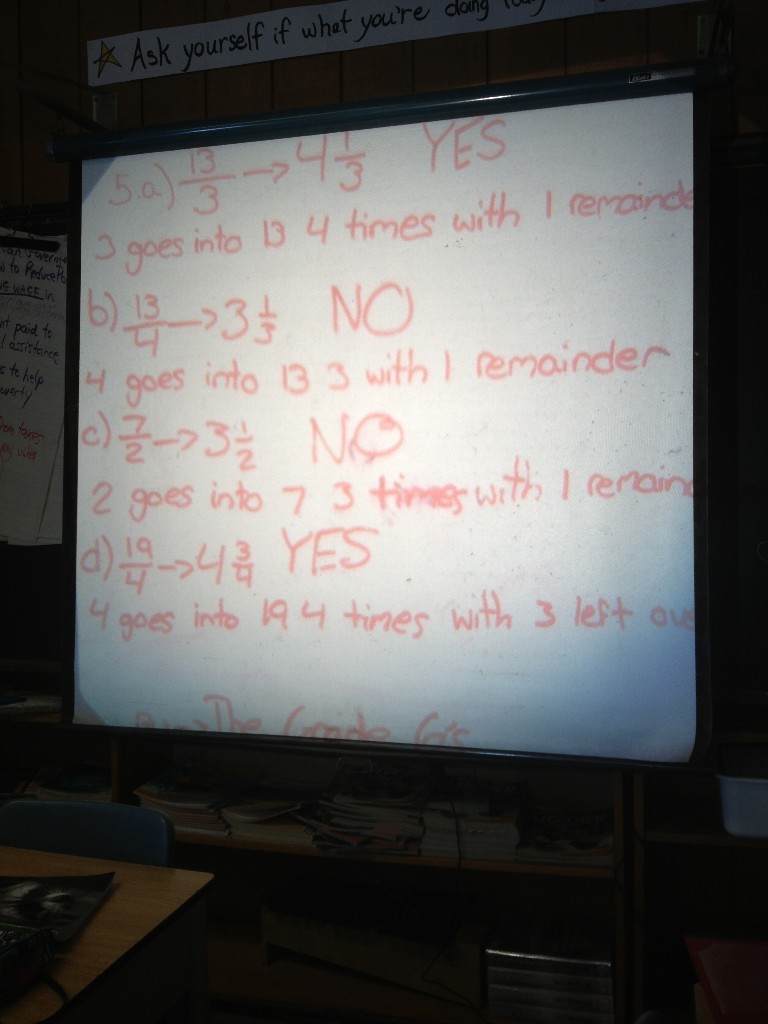 Ask yourself if what you're doing
5.a) 13/3 → 4 1/3 YES
3 goes into 13 4 times with 1 remainde
b) 13/4 → 3 1/3 NO
4 goes into 13 3 with 1 remainder
c) 7/2 → 3 1/2 NO
2 goes into 7 3 times with 1 remain
d) 19/4 → 4 3/4 YES
4 goes into 19 4 times with 3 left ove
The Grade 6's
to Reduce
WAGE in
paid to
assistance
to help